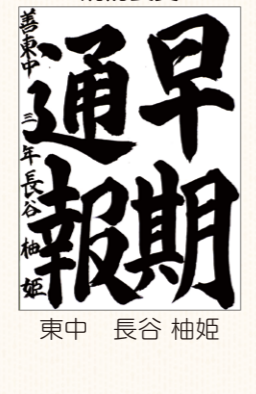 早期
通報
善東中 三年 長谷 柚姫
東中 長谷 柚姫